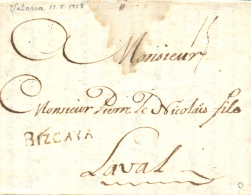 Vitoria, 17.5.1758
15
A Monsieur
Monsieur Pierre De Nicolais fils
BIZCAYA
Laval